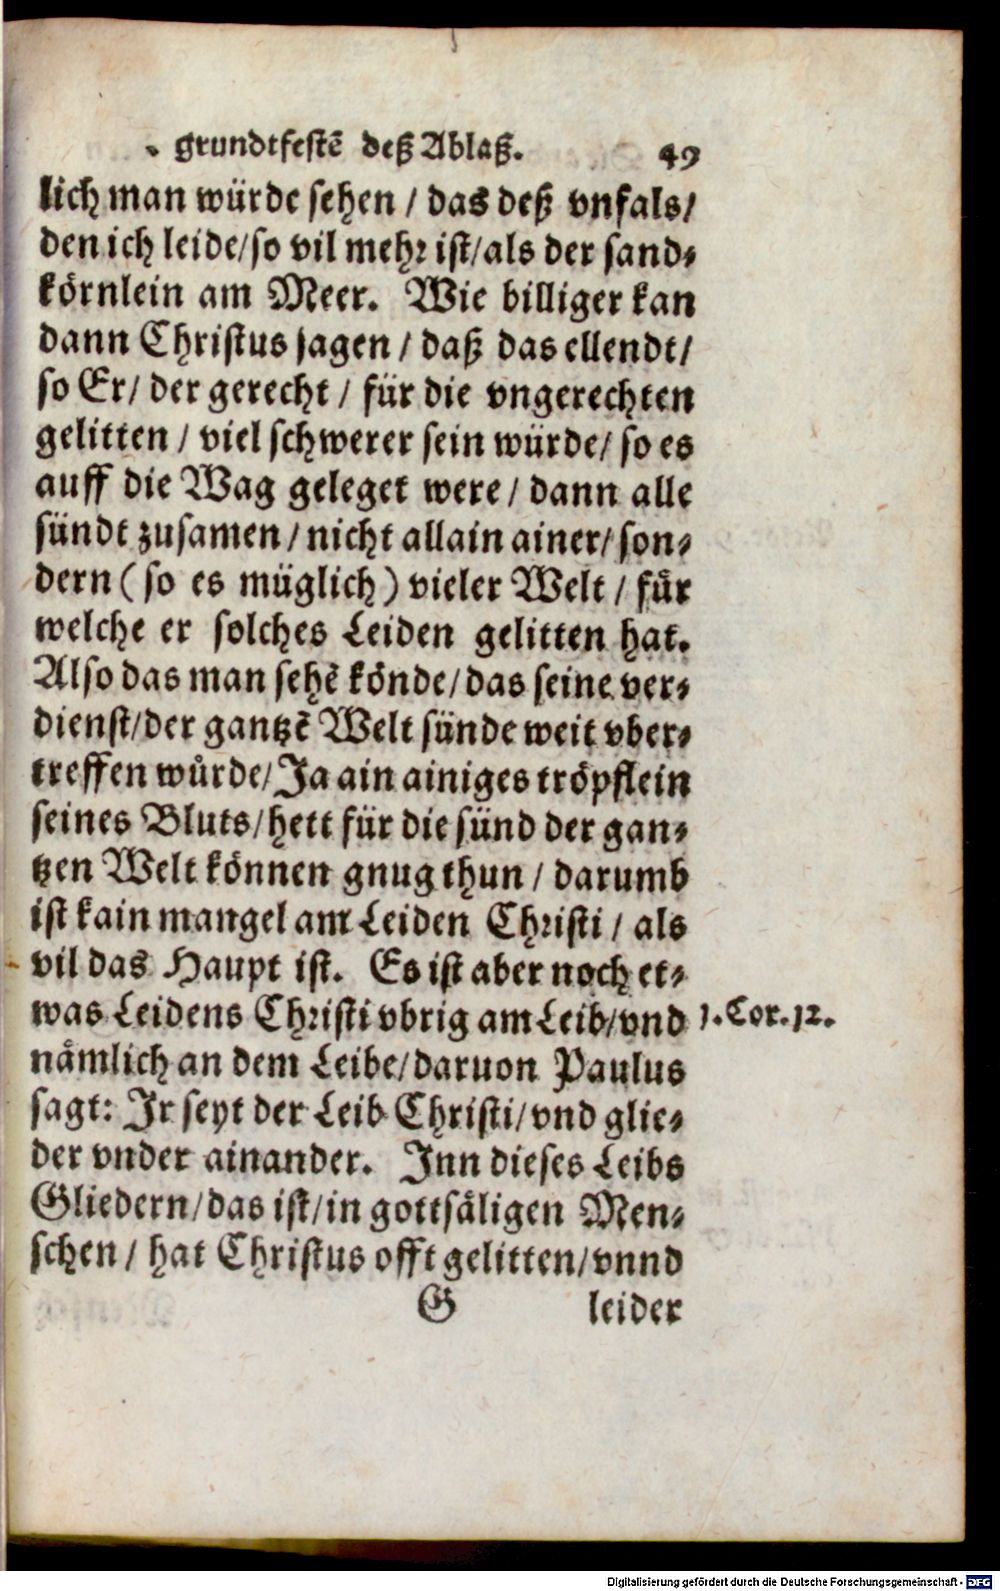 grundtfestē deß Ablaß. 49
lich man würde sehen / das deß vnfals/
den ich leide/so vil mehr ist/als der sand-
körnlein am Meer. Wie billiger kan
dann Christus sagen / daß das ellendt/
so Er/ der gerecht / für die vngerechten
gelitten / viel schwerer sein würde/ so es
auff die Wag geleget were / dann alle
sündt zusamen / nicht allain ainer/ son-
dern ( so es müglich ) vieler Welt / für
welche er solches Leiden gelitten hat.
Also das man sehē könde/das seine ver-
dienst/der gantzē Welt sünde weit vber-
treffen würde/Ja ain ainiges tröpflein
seines Bluts/hett für die sünd der gan-
tzen Welt können gnug thun / darumb
ist kain mangel am Leiden Christi / als
vil das Haupt ist. Es ist aber noch et-
was Leidens Christi vbrig am Leib/vnd 1. Cor. 12.
nämlich an dem Leibe/daruon Paulus
sagt: Ir seyt der Leib Christi/vnd glie-
der vnder ainander. Inn dieses Leibs
Gliedern/das ist/in gottsäligen Men-
schen / hat Christus offt gelitten/vnnd
G leider
Digitalisierung gefördert durch die Deutsche Forschungsgemeinschaft - DFG